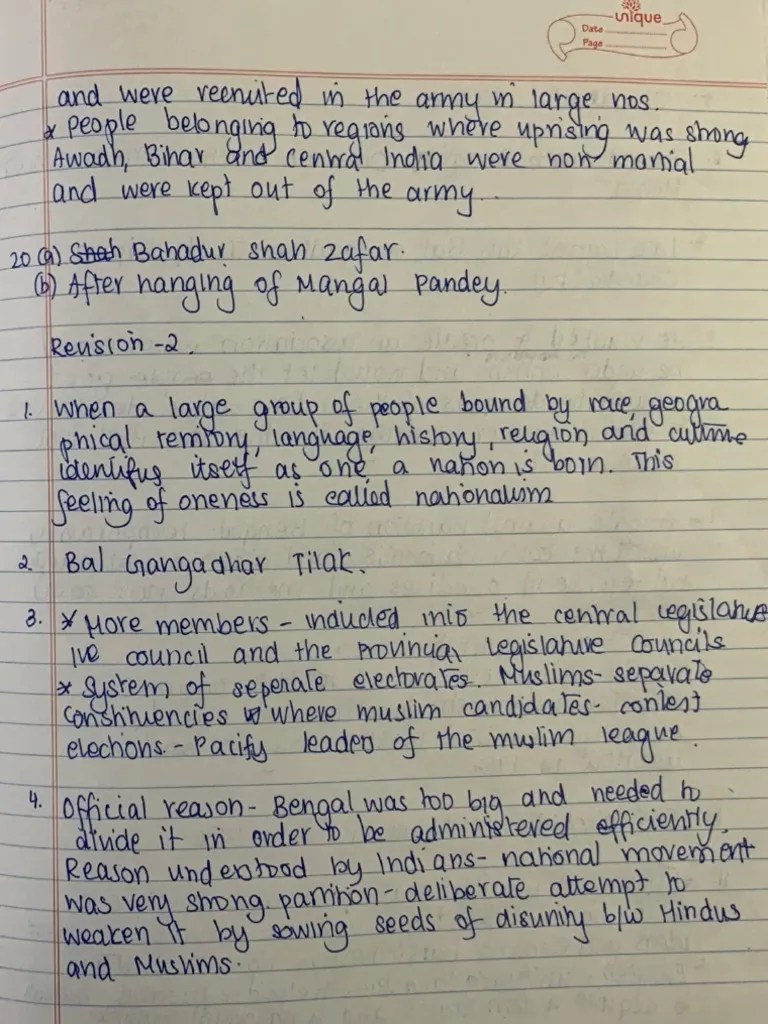 unique
Date
Page
and were recruited in the army in large nos.
* people belonging to regions where uprising was strong
Awadh, Bihar and central India were non martial
and were kept out of the army.
20 (a) Shah Bahadur shah zafar.
(b) After hanging of Mangal Pandey.
Revision -2.
1. When a large group of people bound by race, geogra
phical territory, language, history, religion and culture
identifys itself as one, a nation is born. This
feeling of oneness is called nationalism
2. Bal Gangadhar Tilak.
3. * More members - inducted into the central legislative
ive council and the Provincial Legislative Councils
* System of seperate electorates. Muslims- separate
constituencies where muslim candidates- contest
elections. - Pacify leaders of the muslim league.
4. Official reason - Bengal was too big and needed to
divide it in order to be administered efficiently.
Reason understood by Indians- national movement
was very strong. partition - deliberate attempt to
weaken it by sowing seeds of disunity b/w Hindus
and Muslims.